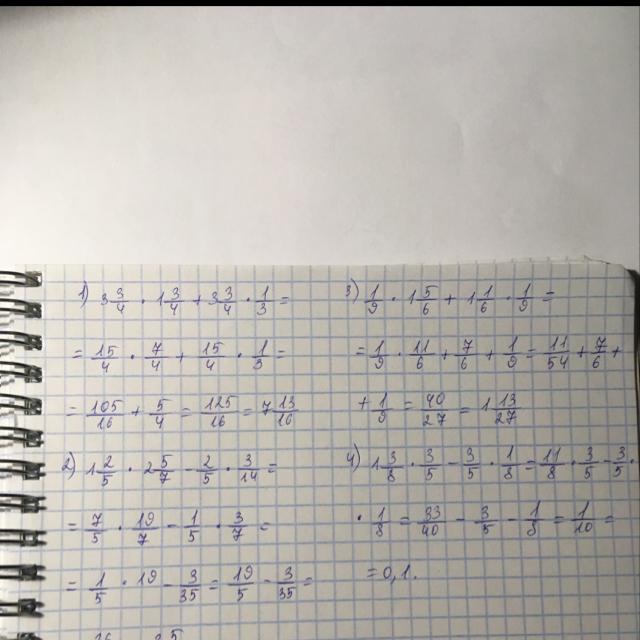 1) 3 3/4 · 1 3/4 + 3 3/4 · 1/3 =
= 15/4 · 7/4 + 15/4 · 1/3 =
= 105/16 + 5/4 = 125/16 = 7 13/16
2) 1 2/5 · 2 5/7 - 2/5 · 3/14 =
= 7/5 · 19/7 - 1/5 · 3/7 =
= 1/5 · 19 - 3/35 = 19/5 - 3/35 =
3) 1/9 · 1 5/6 + 1 1/6 · 1/9 =
= 1/9 · 11/6 + 7/6 + 1/9 = 11/54 + 7/6 +
+ 1/9 = 40/27 = 1 13/27
4) 1 3/8 · 3/5 - 3/5 · 1/8 = 11/8 · 3/5 - 3/5 ·
· 1/8 = 33/40 - 3/5 - 1/8 = 1/10 =
= 0,1.